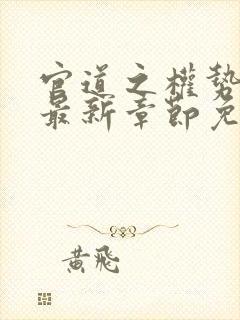 官道之權勢
最新章節免
黃飛